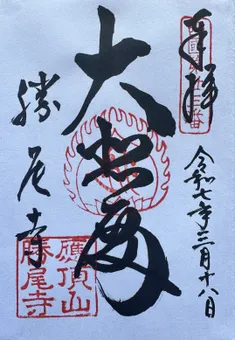 奉拝
令和七年三月十八日
大悲殿
勝尾寺
應頂山
勝尾寺